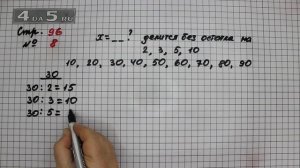 4 ДА 5 .РУ
Стр. 96
№ 8
x = __ ? делится без остатка на
2, 3, 5, 10
10, 20, 30, 40, 50, 60, 70, 80, 90
30
30 : 2 = 15
30 : 3 = 10
30 : 5 =